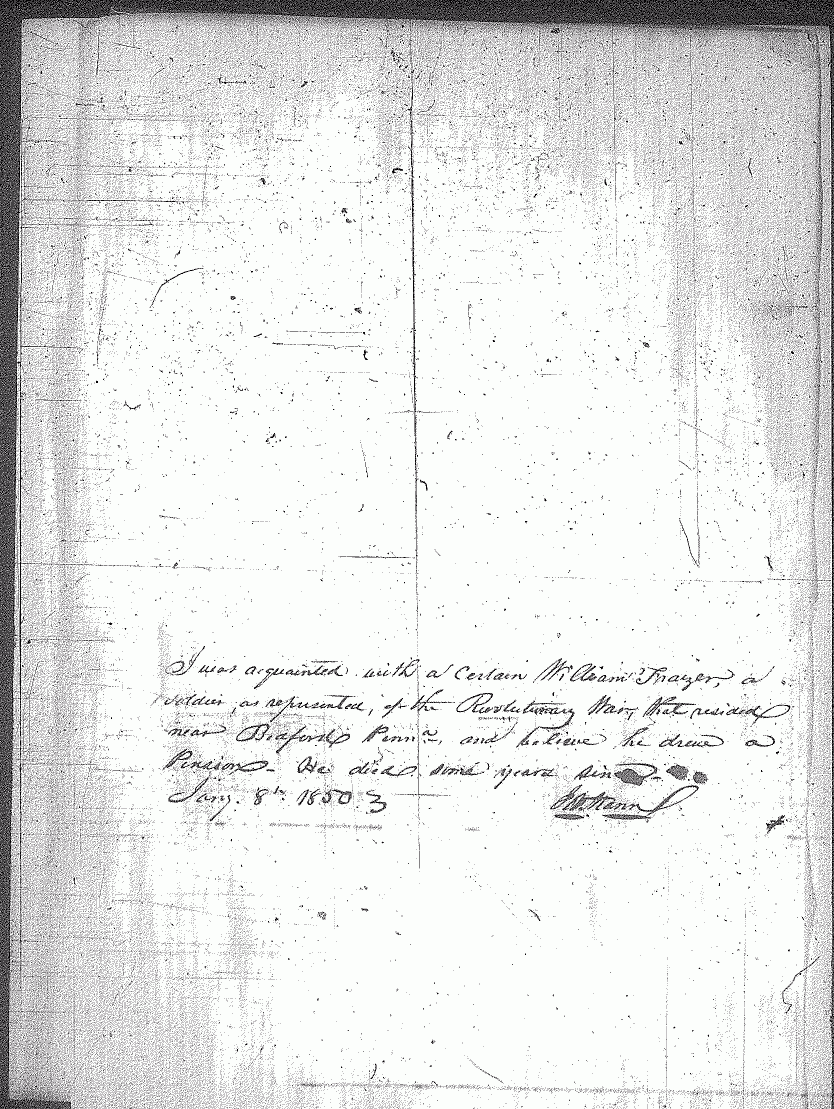 I was acquainted with a certain William Frazer, a
soldier, as represented, of the Revolutionary War, that resided
near Bedford Penna. and believe he drew a
Pension - He died some years since -
Jany. 8th. 1850
Mann